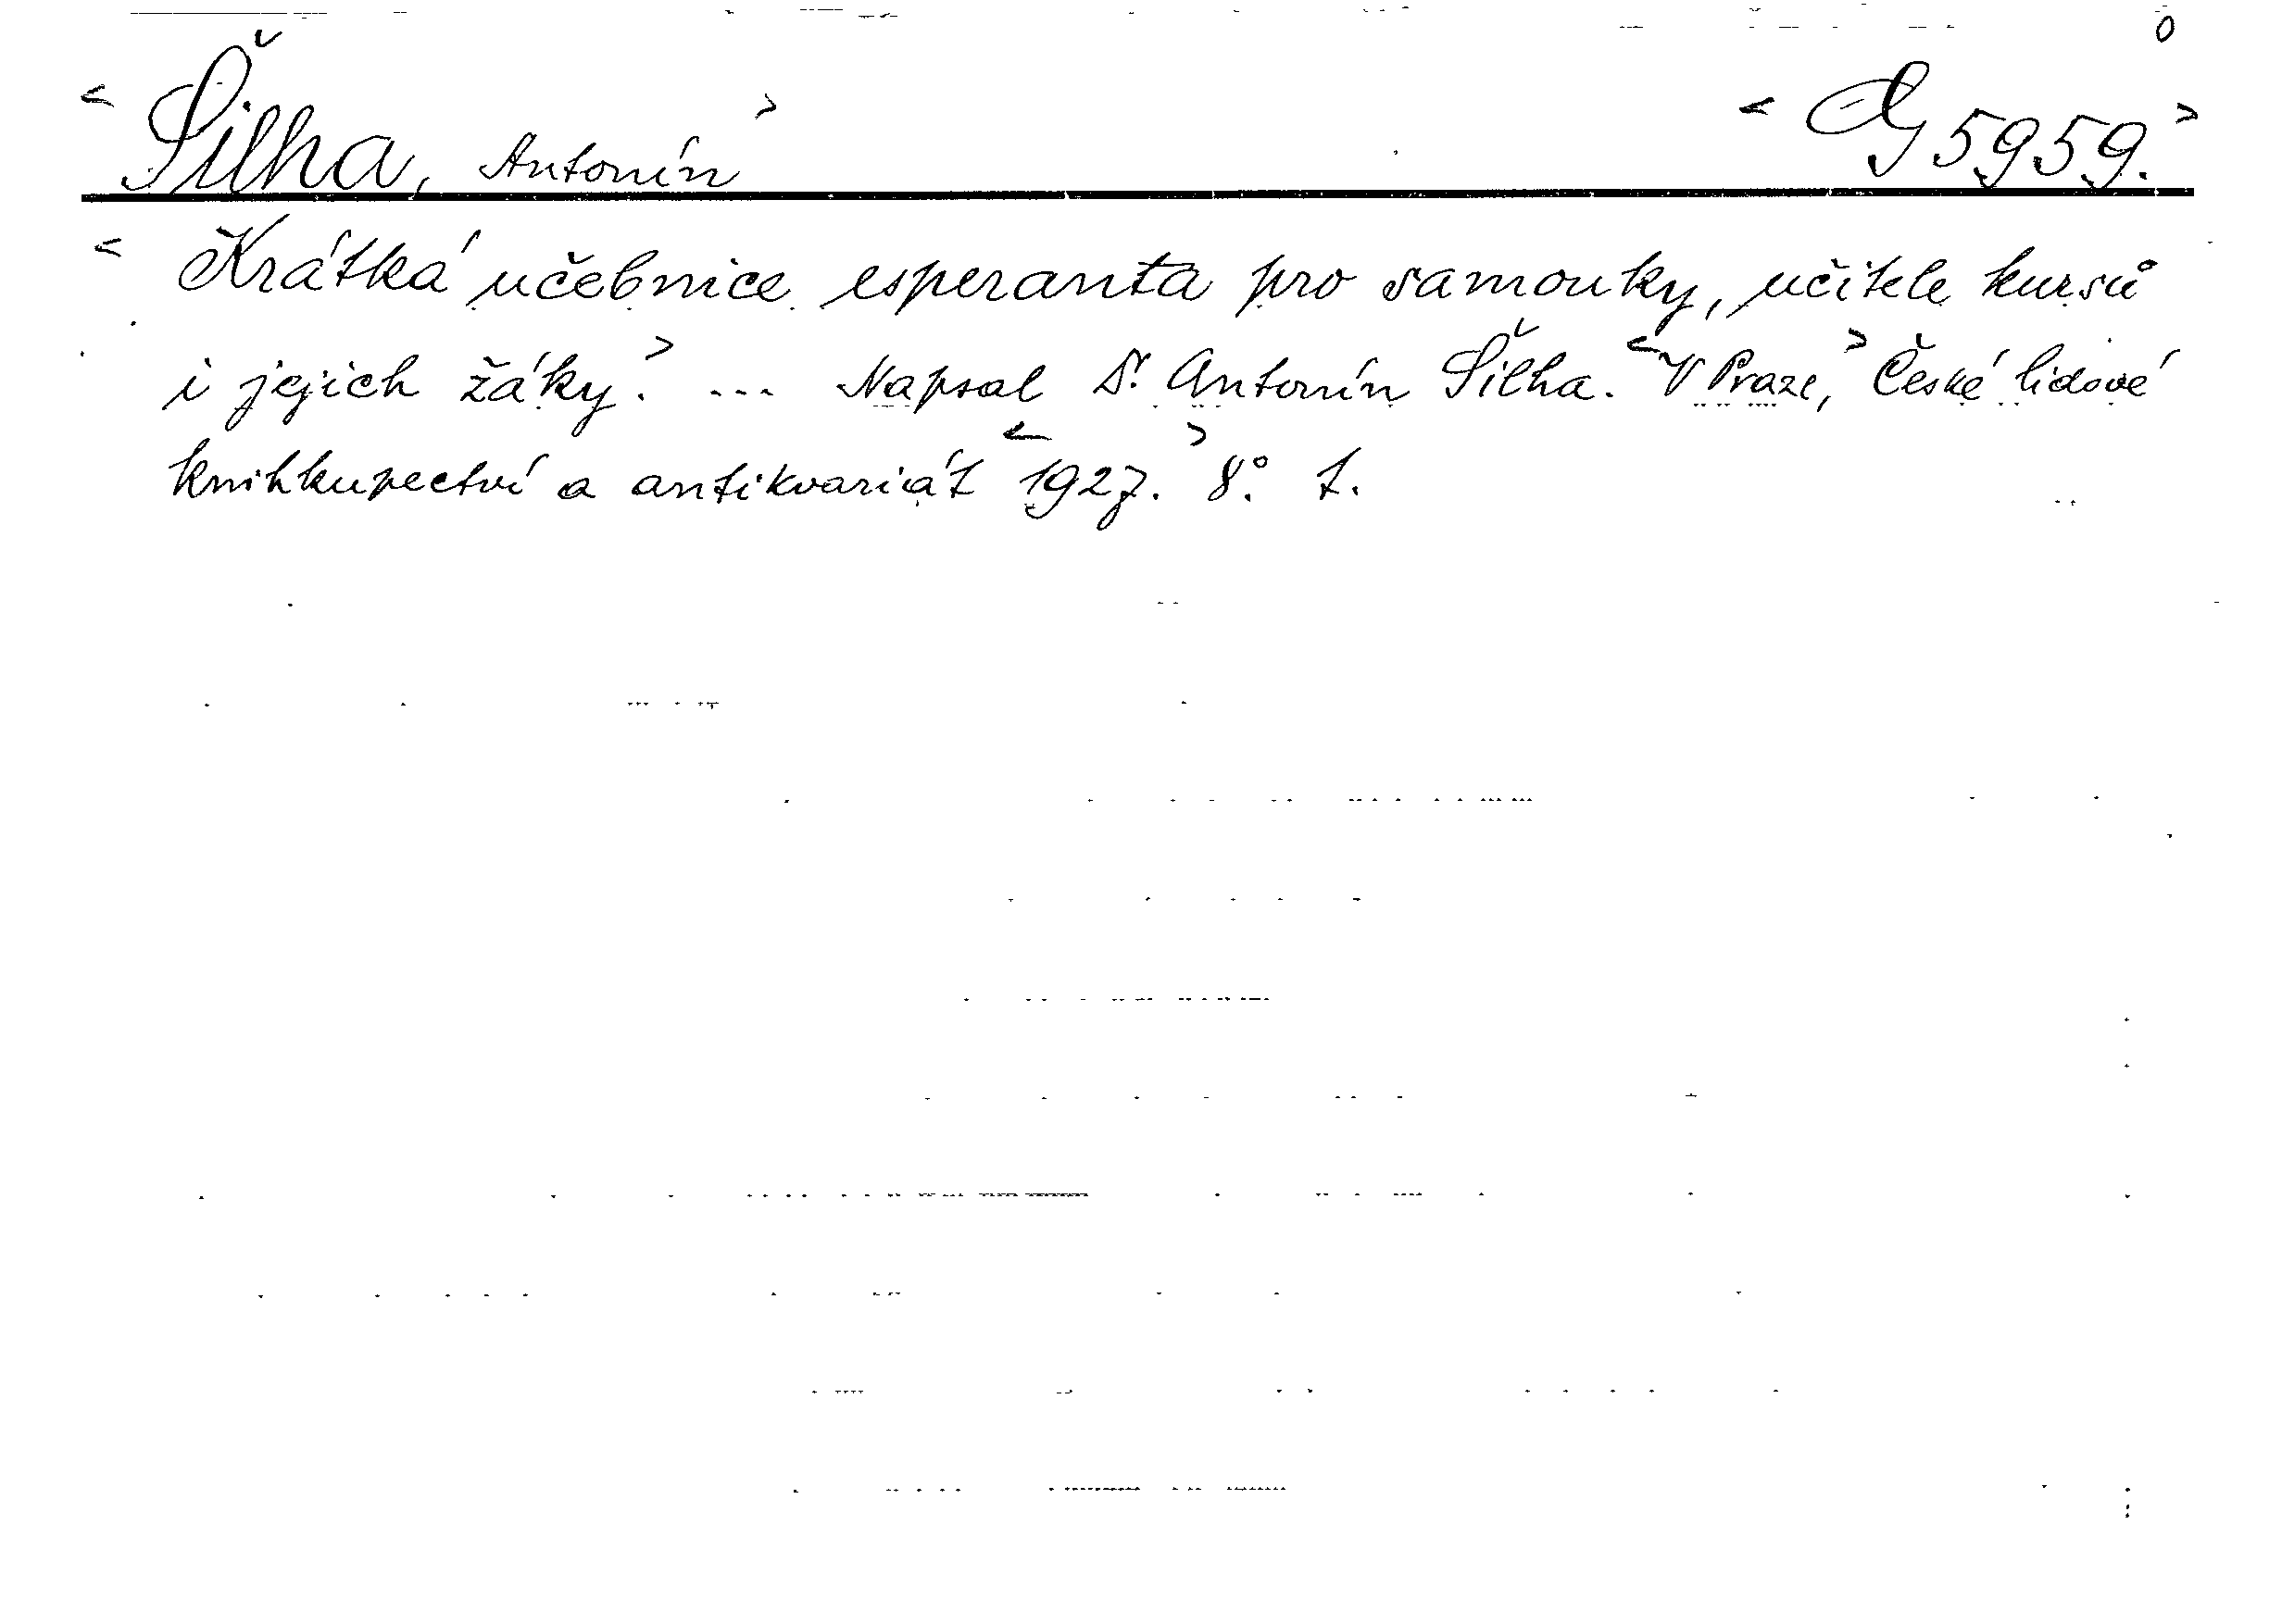 0
< Šilha, Antonín > < G 5959. >
< Krátká učebnice esperanta pro samouky, učitele kursů
i jejich žáky. > ... Napsal Dr. Antonín Šilha. < V Praze, > České lidové
knihkupectví a antikvariát < 1927. > 8°. 1.